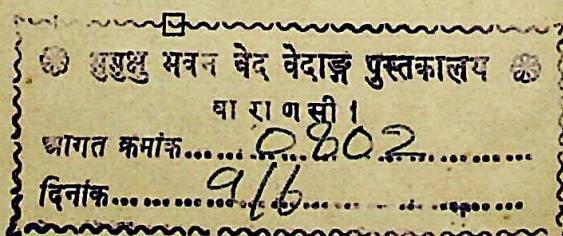 मुमुक्षु भवन वेद वेदाङ्ग पुस्तकालय
वा रा ण सी ।
आगत क्रमांक...... 0802 ..............
दिनांक............. 9/6 ..............